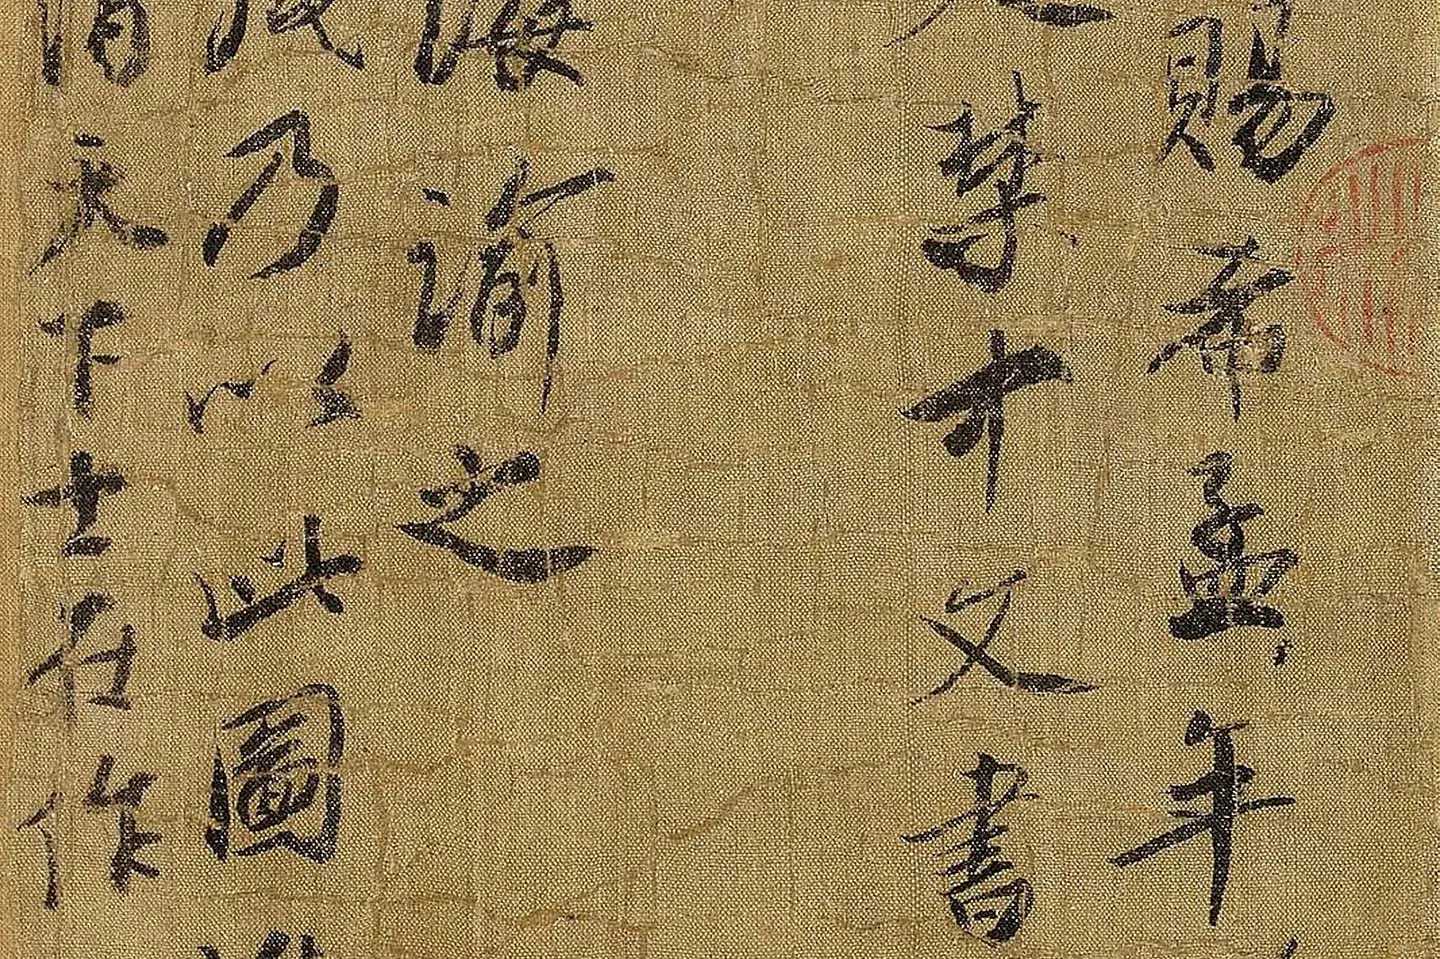 賜希孟年
禁中文書
誨諭之
乃以此圖
謂天下士在作